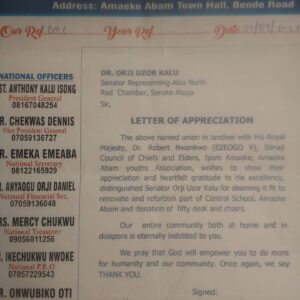 Address: Amaeke Abam Town Hall, Bende Road
Our Ref. 001
Your Ref.
Date
NATIONAL OFFICERS
ST. ANTHONY KALU ISONG
President General
08167048254
R. CHEKWAS DENNIS
Vice President General
07059136727
R. EMEKA EMEABA
National Secretary
08122165929
R. ANYAOGU ORJI DANIEL
National Financial Sec.
07059136048
RS. MERCY CHUKWU
National Treasurer
09056811256
R. IKECHUKWU NWOKE
National P.R.O
07057229543
R. ONWUBIKO OTI
DR. ORJI UZOR KALU
Senator Representing Abia North
Red Chamber, Senate Abuja
Sir,
LETTER OF APPRECIATION
The above named union in tandem with His Royal
Majesty, Dr. Robert Nwankwo (EZEOGO V), Ibenaji
Council of Chiefs and Elders, Iyom Amaeke, Amaeke
Abam youths Association, wishes to show their
appreciation and heartfelt gratitude to his excellency,
distinguished Senator Orji Uzor Kalu for deeming it fit to
renovate and refurbish part of Central School, Amaeke
Abam and donation of fifty desk and chairs.
Our entire community both at home and in
diaspora is eternally indebted to you.
We pray that God will empower you to do more
for humanity and our community. Once again, we say
THANK YOU.
Signed: